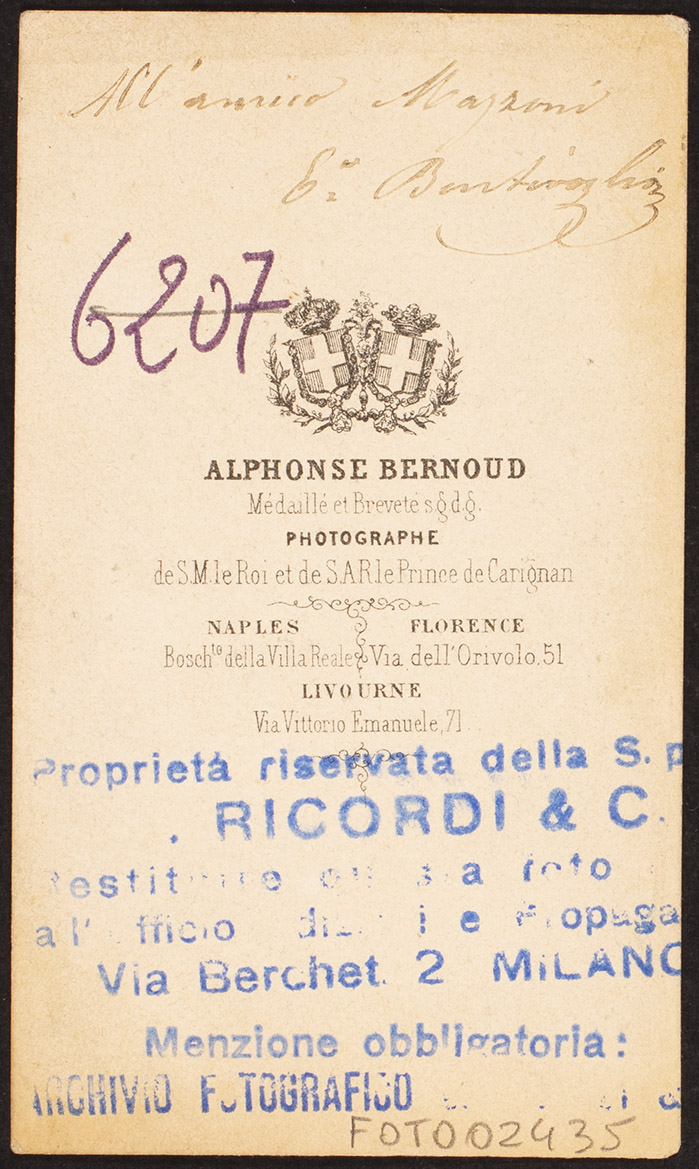 All'amico Mazzoni
E.o Bentivoglio
6207
ALPHONSE BERNOUD
Médaillé et Breveté s.g.d.g.
PHOTOGRAPHE
de S.M. le Roi et de S.A.R. le Prince de Carignan
NAPLES FLORENCE
Boschto della Villa Reale Via dell'Orivolo, 51
LIVOURNE
Via Vittorio Emanuele, 71
Proprietà riservata della S. p
. RICORDI & C.
foto
e Propaga
Via Berchet. 2 MILANO
Menzione obbligatoria:
ARCHIVIO FOTOGRAFICO
FOTO002435